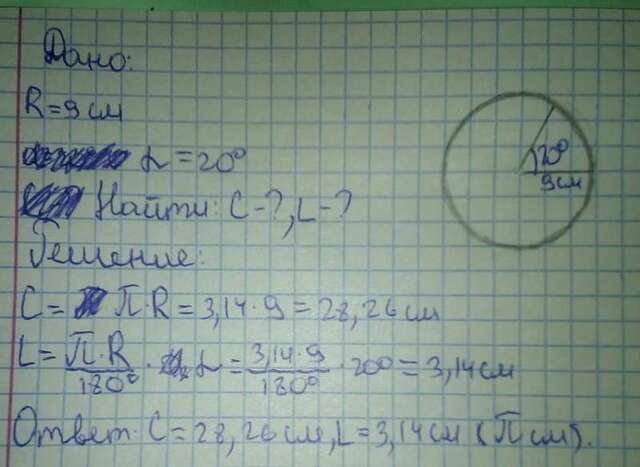 Дано:
R = 9 см
α = 20°
Найти: C - ?, L - ?
Решение:
C = π · R = 3,14 · 9 = 28,26 см
L = π · R / 180° · α = 3,14 · 9 / 180° · 20° = 3,14 см
Ответ: C = 28,26 см, L = 3,14 см (π см).
20°
9 см